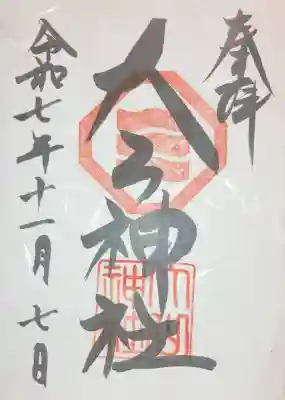 奉拝
大山神社
令和七年十一月七日